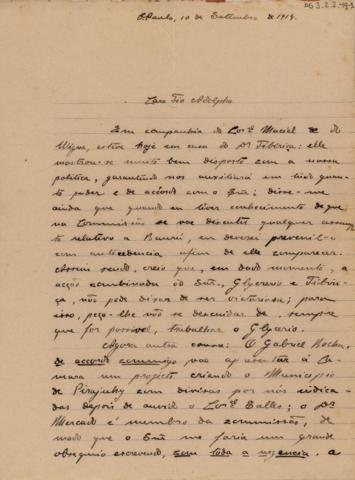 S. Paulo, 10 de Setembro de 1914.
Caro Tio Adolpho
Em companhia do Corel Maciel e do
estive hoje em casa do Dr Tibiriça: elle
mostrou-se muito bem disposto com a nossa
politica, garantindo nos auxiliará em tudo quan-
to puder e de accordo com o Snr; disse-me
ainda que quando eu tiver conhecimento de que
na Commissão se vae discutir qualquer assump-
to relativo a Baurú, eu deverei prevenil-o
com antecedencia afim de elle comparecer.
Assim sendo, creio que, em dado momento, a
acção combinada do Snr, Glycerio e Tibiri-
ça, não póde deixar de ser victoriosa; para
isso, peço-lhe não se descuidar de, sempre
que for possivel, trabalhar o Glycerio.
Agora outra cousa: O Gabriel Rocha,
de accordo commigo vae apresentar á Ca-
mara um projecto criando o Municipio
de Pirajuhy com divisas por nós indica-
das depois de ouvido o Corel Salles; o Dr
Mercado é membro da commissão, de
modo que o Snr me faria um grande
obsequio escrevendo, com toda a urgencia, a